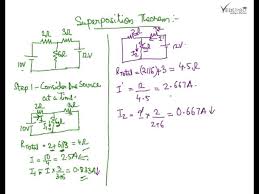 Superposition Theorem:-
2Ω
3Ω
6Ω
10V
12V
Step 1 - Consider One Source
at a time.
2Ω
3Ω
6Ω
10V
R total = 2+6||3 = 4Ω
I = 10/4 = 2.5A
2Ω
3Ω
6Ω
12V
R total = (2||6)+3 = 4.5Ω
I' = 12/4.5 = 2.667A
I2 = I' × 2/(2+6) = 0.667A↓